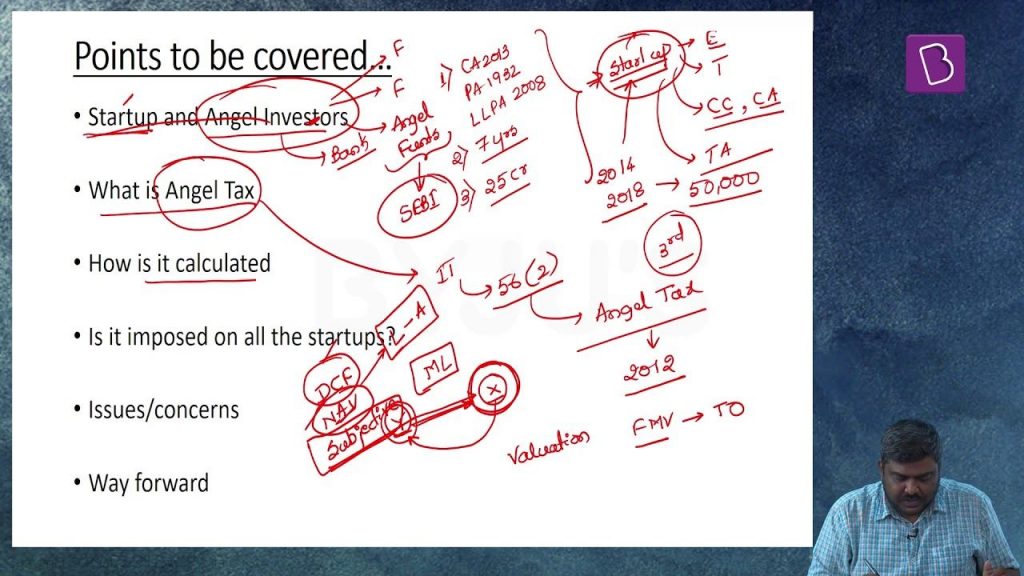 Points to be covered...
• Startup and Angel Investors
• What is Angel Tax
• How is it calculated
• Is it imposed on all the startups?
• Issues/concerns
• Way forward
F
F
Angel Funds
Bank
SEBI
1) CA 2013
PA 1932
LLPA 2008
2) 7 yrs
3) 25 cr
Start up
E
I
CC, CA
TA
2014
2018 → 50,000
3rd
IT
56 (2)
Angel Tax
2012
FMV → TO
Valuation
L-A
ML
DCF
NAV
Subjective
x
BYJU'S
B